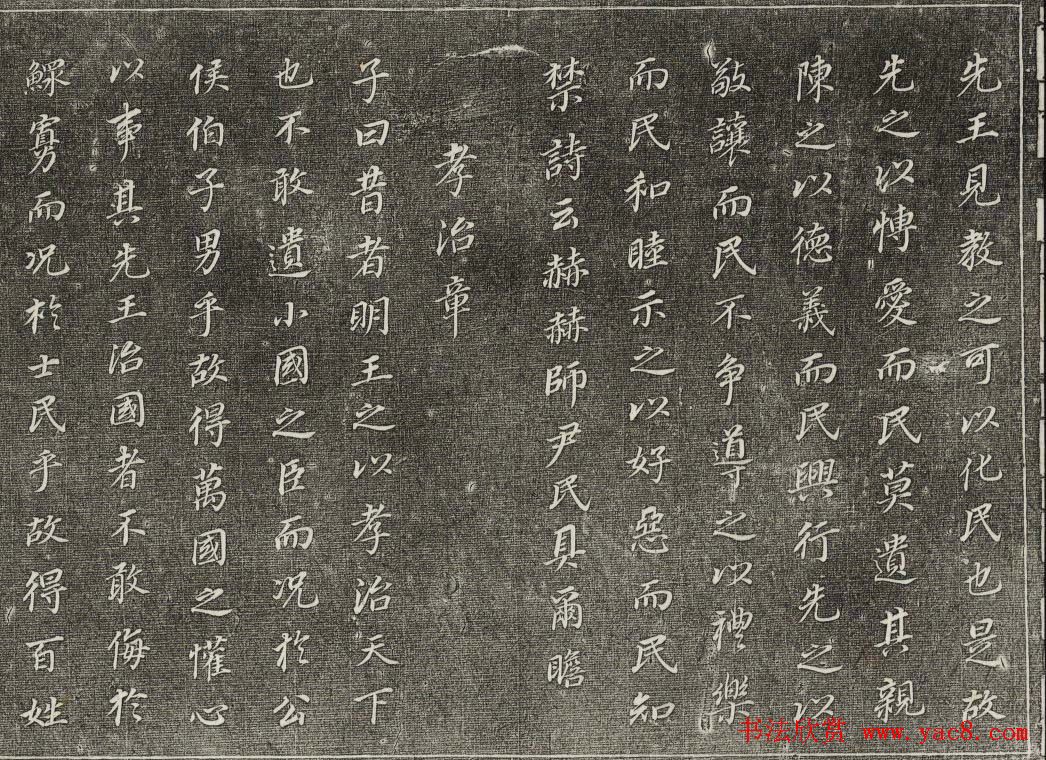 先王見教之可以化民也是故
先之以博愛而民莫遺其親
陳之以德義而民興行先之以
敬讓而民不争導之以禮樂
而民和睦示之以好惡而民知
禁詩云赫赫師尹民具爾瞻
孝治章
子曰昔者明王之以孝治天下
也不敢遺小國之臣而况於公
侯伯子男乎故得萬國之懽心
以事其先王治國者不敢侮於
鰥寡而况於士民乎故得百姓
书法欣赏 www.yac8.com